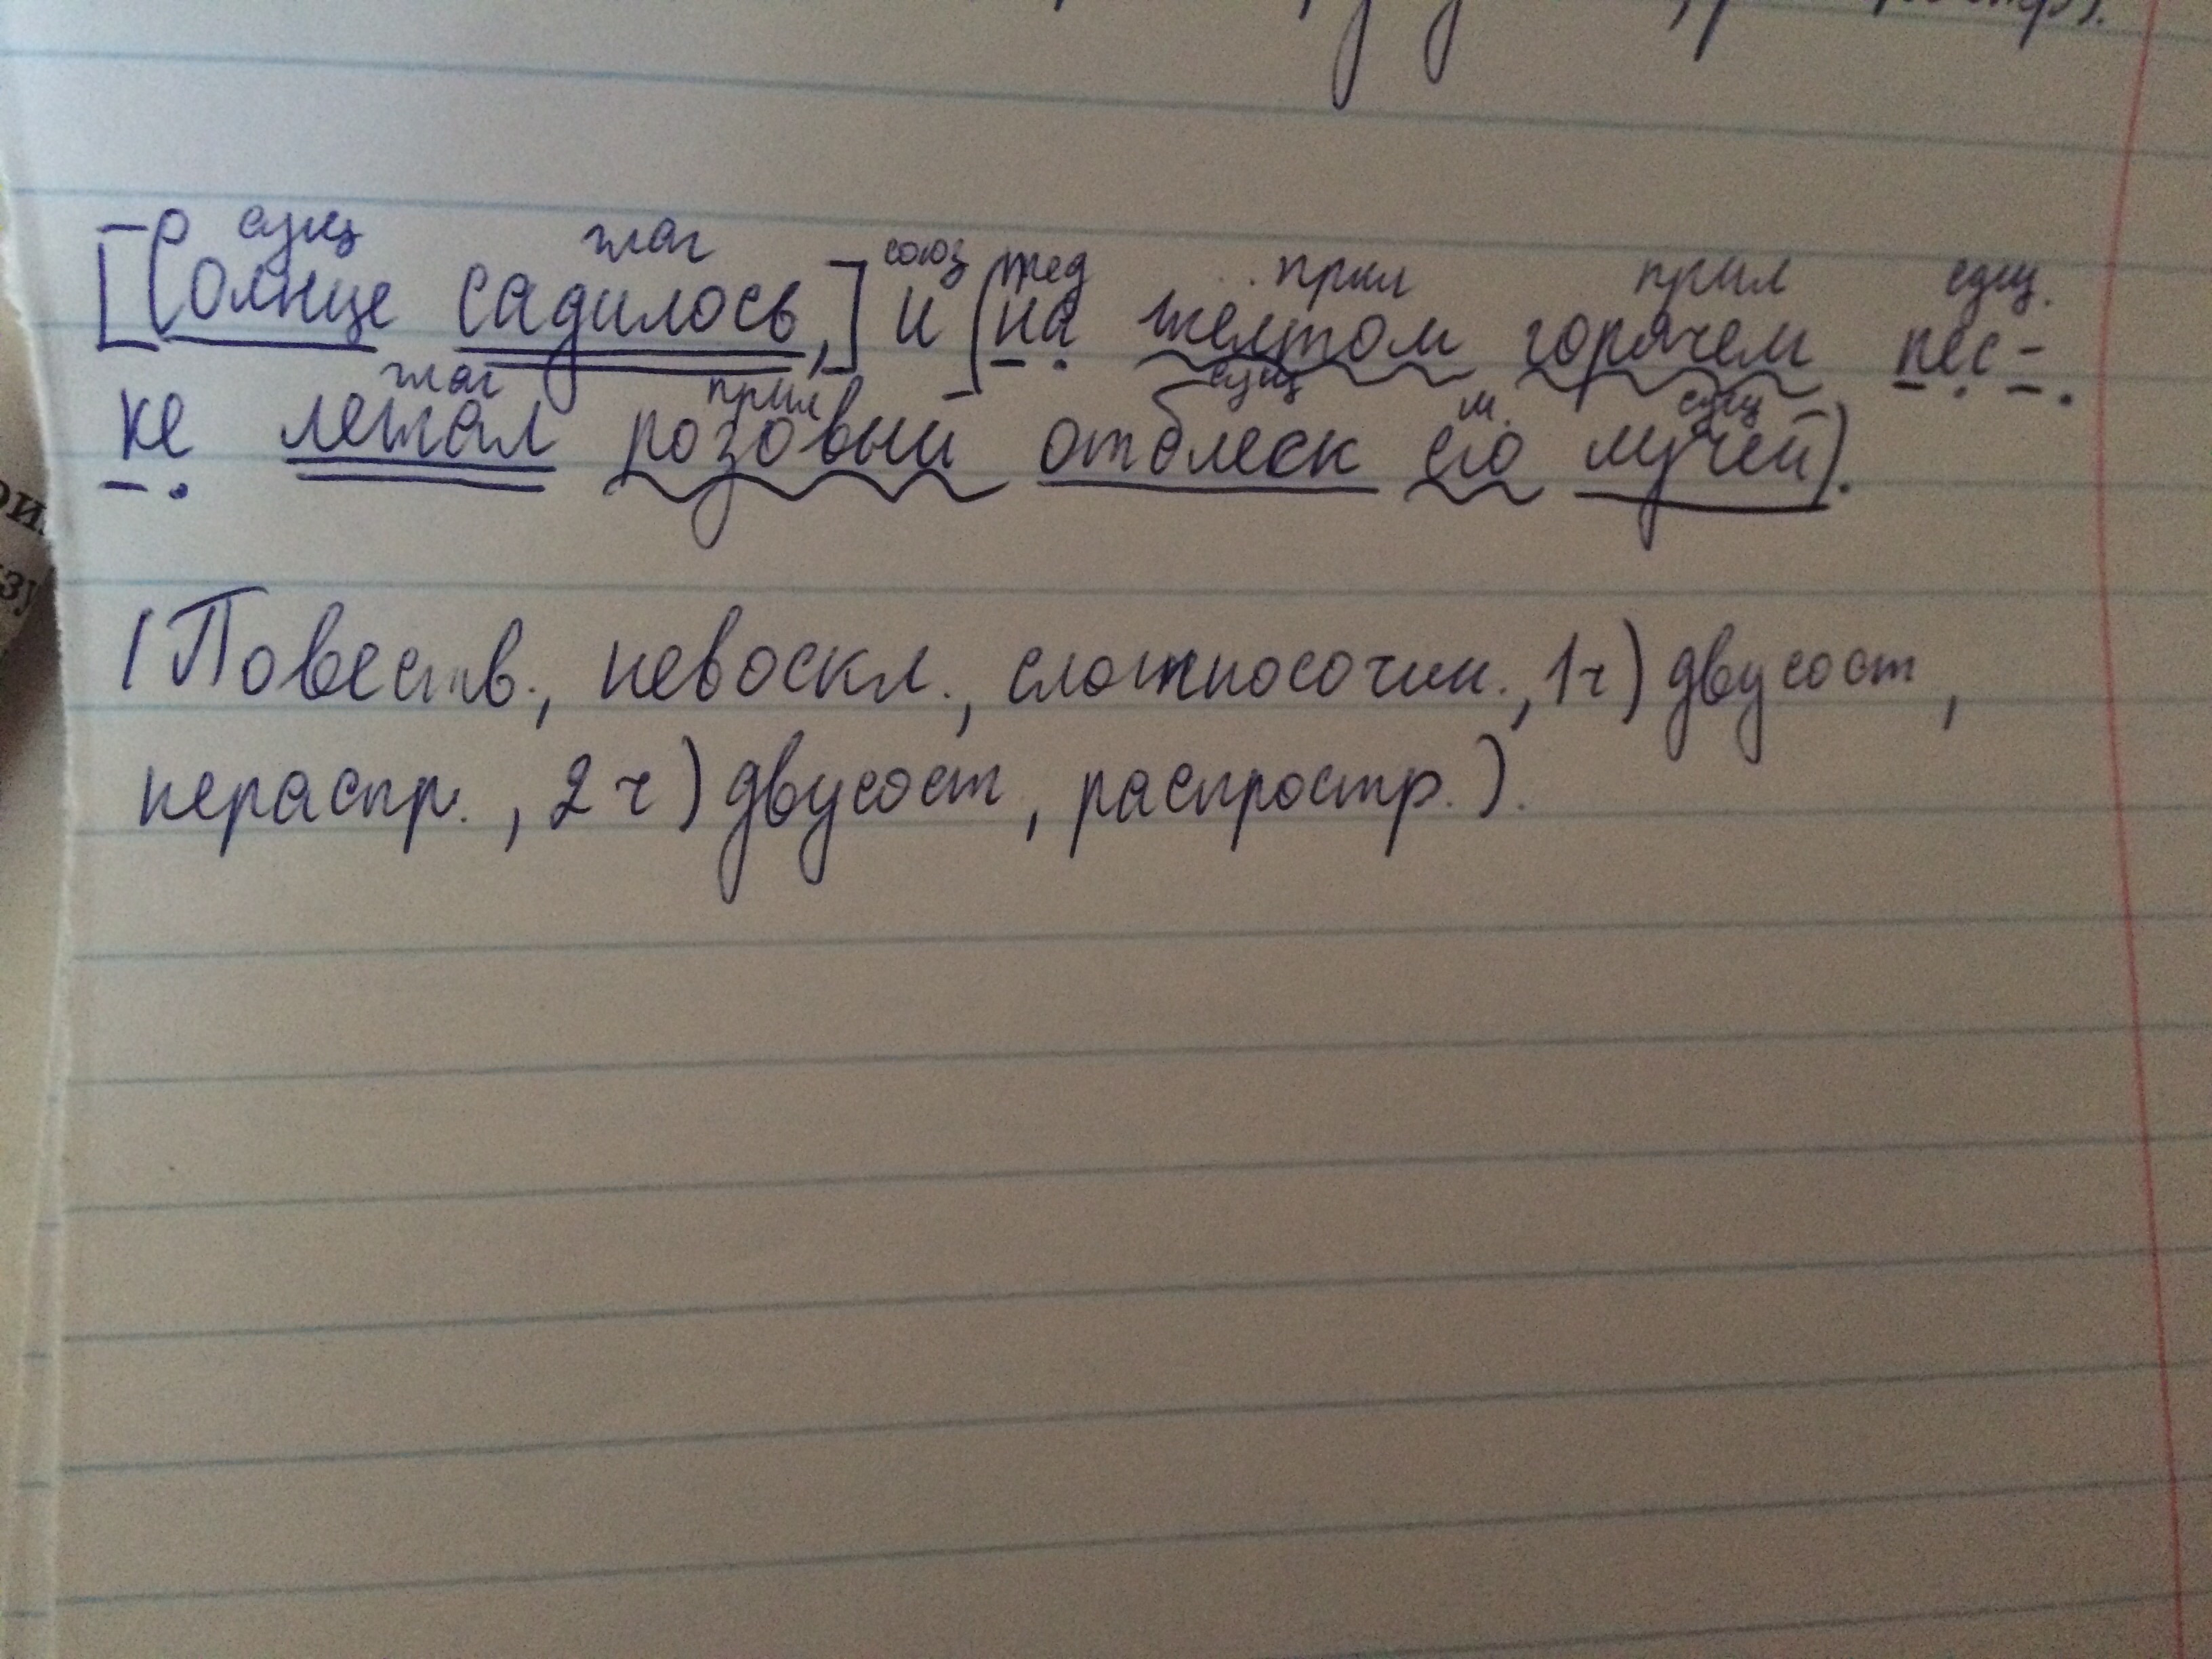 сущ глаг союз пред прил прил сущ.
[Солнце садилось,] и (на желтом горячем пес-
глаг прил сущ м. сущ
ке лежал розовый отблеск его лучей).
(Повеств., невоскл., сложносочин., 1ч) двусост,
нераспр., 2 ч) двусост, распростр.).